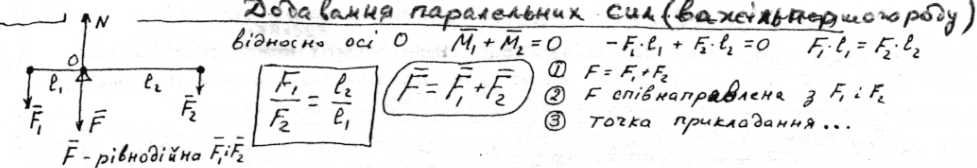 Додавання паралельних сил (важіль першого роду)
відносно осі O M̄₁ + M̄₂ = 0 -F₁·l₁ + F₂·l₂ = 0 F₁·l₁ = F₂·l₂
N̄
O
l₁ l₂
F̄₁ F̄ F̄₂
F₁/F₂ = l₂/l₁
F̄ = F̄₁ + F̄₂
① F = F₁ + F₂
② F співнаправлена з F₁ і F₂
③ точка прикладання...
F̄ - рівнодійна F̄₁ і F̄₂